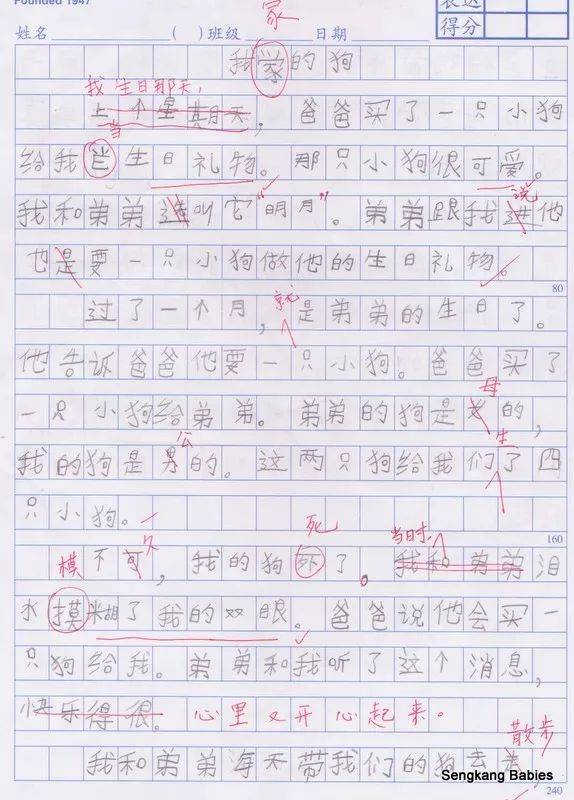 Founded 1947
家
表达
得分
姓名 ( ) 班级 日期
我家的狗
我生日那天，
上个星期天，爸爸买了一只小狗
当
给我当生日礼物。那只小狗很可爱。
说
我和弟弟叫它“明月”。弟弟跟我他
也是要一只小狗做他的生日礼物。
80
就
过了一个月，是弟弟的生日了。
他告诉爸爸他要一只小狗。爸爸买了
母
一只小狗给弟弟。弟弟的狗是的，
公 生
我的狗是男的。这两只狗给我们了四
只小狗。
160
死
当时
模 久
不可，我的狗了。我和弟弟泪
水摸糊了我的双眼。爸爸说他会买一
只狗给我。弟弟和我听了这个消息，
快乐得很。心里又开心起来。
散步
我和弟弟每天带我们的狗去
Sengkang Babies
240